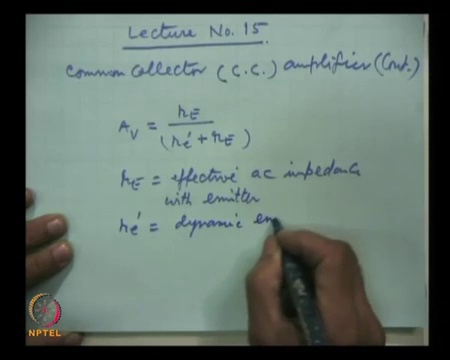 Lecture No. 15.
Common Collector (C.C.) amplifier (Cont.)
Av = rE / (ré + rE)
rE = effective ac impedance
with emitter
ré = dynamic em
NPTEL